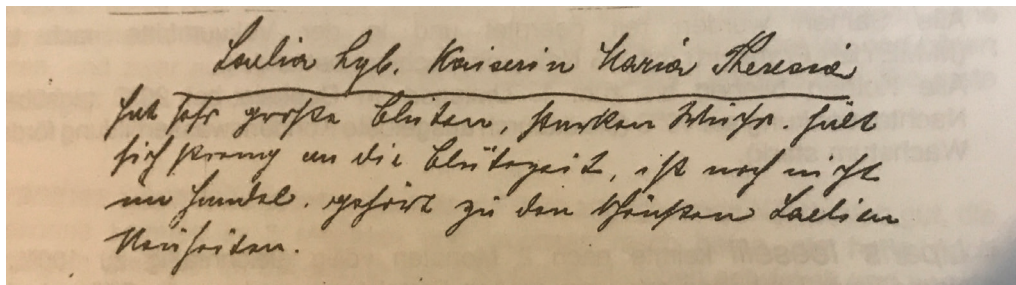 Laelia hyb. Kaiserin Maria Theresia
hat sehr große Blüten, starken Wuchs. hält
sich streng an die Blütezeit, ist noch nicht
im Handel. gehört zu den schönsten Laelien
Neuheiten.